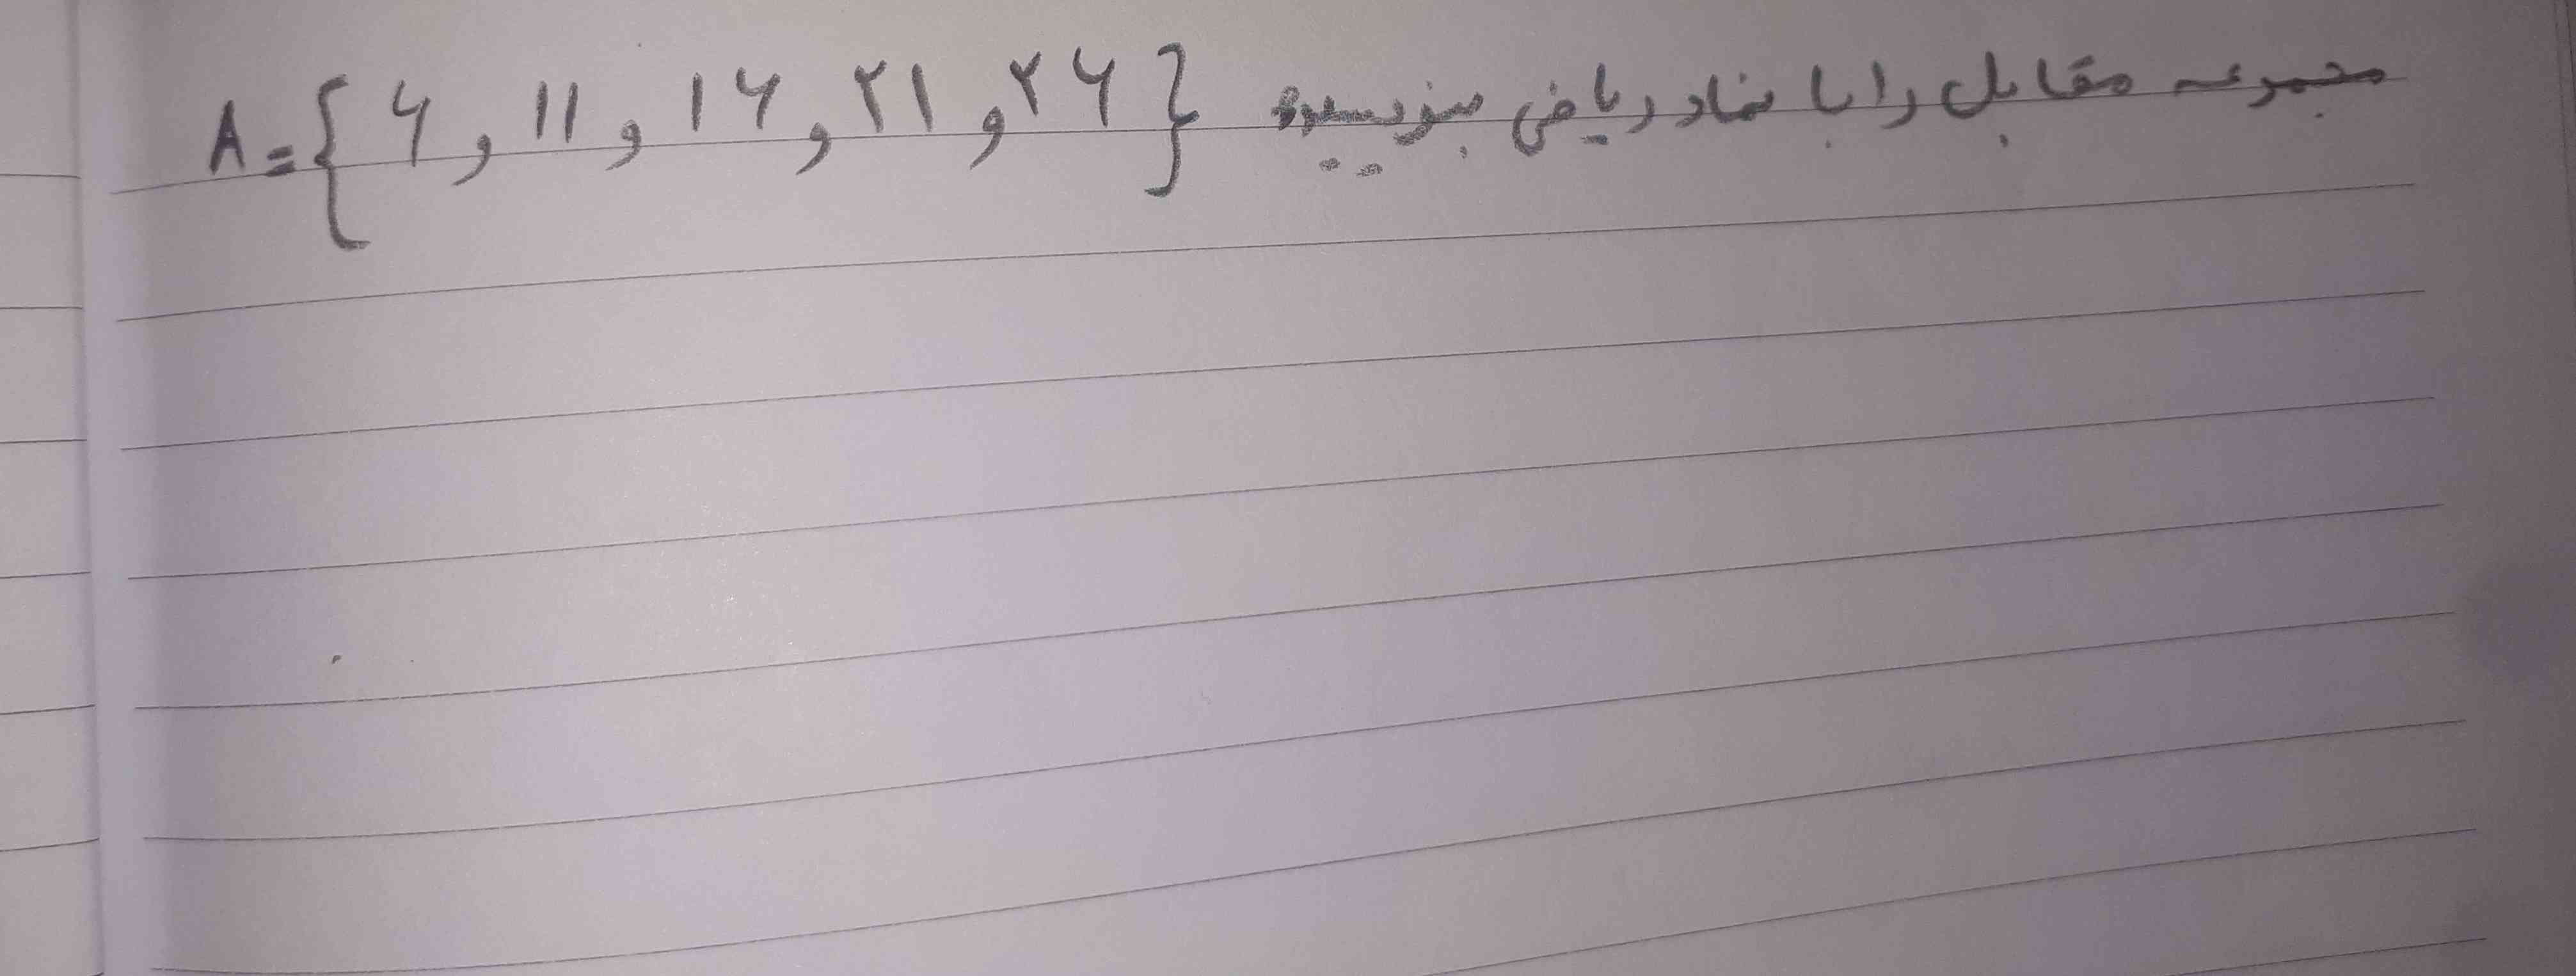 مجموعه مقابل را با نماد ریاضی بنویسید A = {۶ , ۱۱ , ۱۶ , ۲۱ , ۲۶}